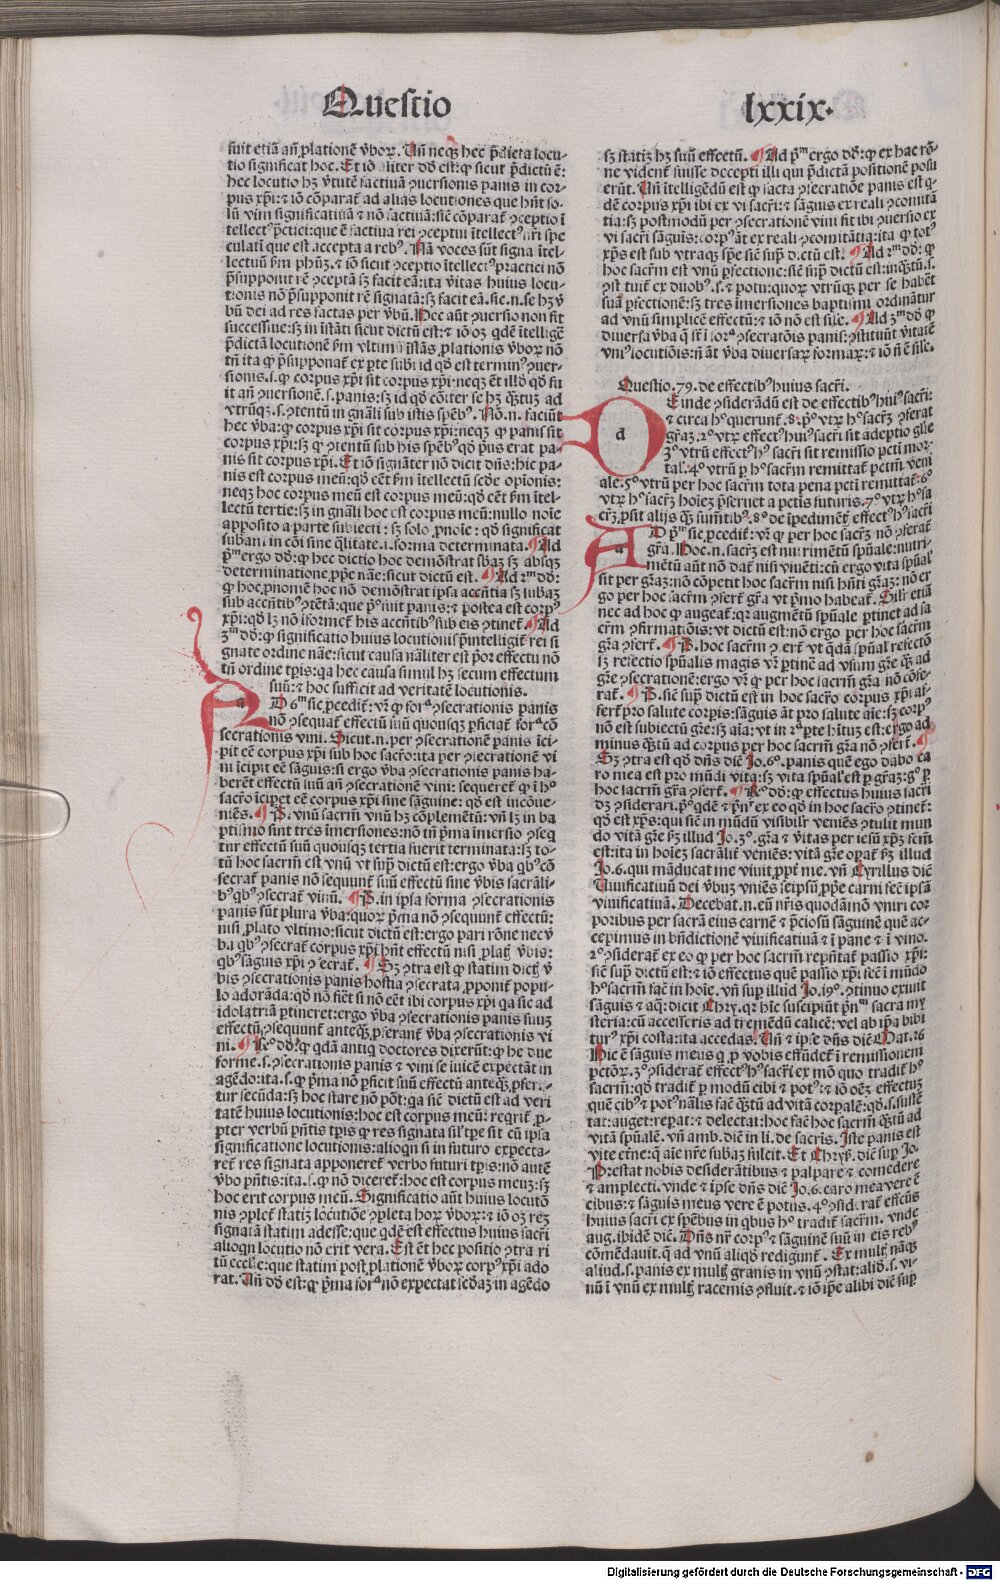 Questio
lxxix.
sint etiā añ ꝓlationē v̄boꝝ. Uñ neqꝫ hec p̄dicta locu-
tio significat hoc. Et iō aliter dd̄ est: ꝙ sicut p̄dictū ē:
hec locutio hꝫ v̓tutē factiuā ꝯuersionis panis in cor-
pus xp̄i: ⁊ iō cōparat᷑ ad alias locutiones que hn̄t so-
lū vim significatiuā ⁊ nō factiuā: sic̄ cōparat᷑ ꝯceptio ī
tellectꝰ p̄ctici: que ē factiua rei ꝯceptui ītellectꝰ nr̄i spe
culatiui que est accepta a rebꝰ. Nā voces sūt signa ītel-
lectuū s̄m ph̄m. ⁊ iō sicut ꝯceptio ītellectꝰ practici nō
p̄supponit rē ꝯceptā sꝫ facit eā: ita v̓itas huius locu-
tionis nō p̄supponit rē signatā: sꝫ facit eā. sic. n. se hꝫ v̓
bū dei ad res factas per v̓bū. Hec aūt ꝯuersio non fit
successiue: sꝫ in īstāti sicut dictū est: ⁊ iō oꝫ qdē ītelligē
p̄dictā locutionē s̄m vltimū īstās ꝓlationis v̓boꝝ nō
tn̄ ita ꝙ p̄supponat᷑ ex pte subiecti id qd̄ est terminꝰ ꝯuer-
sionis. i. ꝙ corpus xp̄i sit corpus xp̄i: neqꝫ ēt illd̓ qd̄ fu
it añ ꝯuersionē. s. panis: sꝫ id qd̄ cōiter se hꝫ qꝫtuꝫ ad
vtrūqꝫ. s. ꝯtentū in gn̄ali sub istis spēbꝰ. Nō. n. faciūt
hec v̓ba: ꝙ corpus xp̄i sit corpus xp̄i: neqꝫ ꝙ panis sit
corpus xp̄i: sꝫ ꝙ ꝯtentū sub his spēbꝰ qd̄ pͥus erat pa-
nis sit corpus xp̄i. Et iō signāter nō dicit dn̄s: hic pa-
nis est corpus meū: qd̄ eēt s̄m ītellectū scd̄e opionis:
neqꝫ hoc corpus meū est corpus meū: qd̄ eēt s̄m ītel-
lectū tertie: sꝫ in gn̄ali hoc est corpus meū: nullo noīe
apposito a parte subiecti: sꝫ solo ꝓnoīe: qd̄ significat
subam̄ in cōi sine q̄litate. i. forma determinata. Ad
p̄mᵐ ergo dd̄: ꝙ hec dictio hoc demōstrat sbaꝫ sꝫ absqꝫ
determinatione ꝓpͥe nāe: sicut dictū est. Ad 2ᵐ dd̄:
ꝙ hoc ꝓnomē hoc nō demōstrat ipsa accn̄tia sꝫ subaꝫ
sub accn̄tibꝰ ꝯtētā: que pͥmū fuit panis: ⁊ postea est corpꝰ
xp̄i: qd̄ lꝫ nō iformet᷑ his accn̄tibꝰ sub eis ꝯtinet᷑. Ad
3ᵐ dd̄: ꝙ significatio huius locutionis p̄intelligit᷑ rei si
gnate ordine nāe: sicut causa nāliter est pͥor effectu nō
tn̄ ordine tp̄is: qa hec causa simul hꝫ secum effectum
suū: ⁊ hoc sufficit ad veritatē locutionis.
AD 6ᵐ sic ꝓcedit᷑: vr̄ ꝙ forᵃ ꝯsecrationis panis
nō ꝯsequat᷑ effectū suū quousqꝫ ꝑficiat᷑ forᵃ cō
secrationis vini. Sicut. n. per ꝯsecrationē panis īci-
pit eē corpus xp̄i sub hoc sacr̄o: ita per ꝯsecrationē vi
ni īcipit eē sāguis: si ergo v̓ba ꝯsecrationis panis ha-
berēt effectū suū añ ꝯsecrationē vini: sequeret᷑ ꝙ ī hͦ
sacr̄o īciperet eē corpus xp̄i sine sāguine: qd̄ est incōue-
niēs. P. vnū sacrm̄ vnū hꝫ cōplemētū: vn̄ lꝫ in ba
ptismo sint tres īmersiones: nō tn̄ pͥma īmersio ꝯseq
tur effectū suū quousqꝫ tertia fuerit terminata: sꝫ to-
tū hoc sacrm̄ est vnū vt supͣ dictū est: ergo v̓ba qbꝰ cō
secrat᷑ panis nō ꝯsequunt᷑ suū effectū sine v̓bis sacr̄ali-
bꝰ qbꝰ ꝯsecrat᷑ vinū. P. in ipsa forma ꝯsecrationis
panis sūt plura v̓ba: quoꝝ pͥma nō ꝯsequunt᷑ effectū:
nisi ꝓlato vltimo: sicut dictū est: ergo pari rōne nec v̓
ba qbꝰ ꝯsecrat᷑ corpus xp̄i hn̄t effectū nisi ꝓlatꝭ v̓bis:
qbꝰ sāguis xp̄i ꝯsecrat᷑. Sꝫ ꝯtra est ꝙ statim dictꝭ v̓
bis ꝯsecrationis panis hostia ꝯsecrata ꝓponit᷑ popu-
lo adorāda: qd̄ nō fieret si nō eēt ibi corpus xp̄i qa sic ad
idolatriā ꝑtineret: ergo v̓ba ꝯsecrationis panis suuꝫ
effectū ꝯsequunt᷑ anteqꝫ ꝓferant᷑ v̓ba ꝯsecrationis vi
ni. R° dd̄: ꝙ qdā antiq doctores dixerūt: ꝙ he due
forme. s. ꝯsecrationis panis ⁊ vini se iuicē expectāt in
agēdo: ita. s. ꝙ pͥma nō ꝑficit suū effectū anteqꝫ ꝓfera-
tur secūda: sꝫ hoc stare nō pōt: qa sic̄ dictū est ad veri
tatē huius locutionis: hoc est corpus meū: reqrit᷑ ꝓ-
pter verbū p̄ntis tp̄is ꝙ res signata sil̓ tp̄e sit cū ipsa
significatione locutionis: alioqn si in futuro expecta-
ret᷑ res signata apponeret᷑ verbo futuri tp̄is: nō autē
v̓bo p̄ntis: ita. s. ꝙ nō diceret᷑: hoc est corpus meuꝫ: sꝫ
hoc erit corpus meū. Significatio aūt huius locutō
nis ꝯplet᷑ statiꝫ locutiōe ꝯpleta hoꝝ v̓boꝝ: ⁊ iō oꝫ reꝫ
signatā statim adesse: que qdē est effectus huius sacri
alioqn locutio nō erit vera. Est ēt hec positio ꝯtra ri
tū eccl̓ie: que statim post ꝓlationē v̓boꝝ corpꝰ xp̄i ado
rat. Uñ dd̄ est: ꝙ pͥma forᵃ nō expectat scd̄aꝫ in agēdo
sꝫ statiꝫ hꝫ suū effectū. Ad p̄mᵐ ergo dd̄: ꝙ ex hac rō-
ne vident᷑ fuisse decepti illi qui p̄dictā positionē posu
erūt. Uñ ītelligēdū est ꝙ facta ꝯsecratiōe panis est q-
dē corpus xp̄i ibi ex vi sacr̄i: ⁊ sāgius ex reali ꝯcomitā
tia: sꝫ postmodū per ꝯsecrationē vini fit ibi ꝯuersio ex
vi sacr̄i sāguis: corpꝰ āt ex reali ꝯcomitātia: ita ꝙ totꝰ
xp̄s est sub vtraqꝫ spē sic̄ supͣ dictū est. Ad 2ᵐ dd̄: ꝙ
hoc sacrm̄ est vnū ꝑfectione: sic̄ supͣ dictū est: inqꝫtū. s.
ꝯstituit᷑ ex duobꝰ. s. ⁊ potu: quoꝝ vtrūqꝫ per se habet
suā ꝑfectionē: sꝫ tres īmersiones baptismi ordināt᷑
ad vnū simplicē effectū: ⁊ iō nō est sil̓e. Ad 3ᵐ dd̄ ꝙ
diuersa v̓ba q̄ sūt ī forᵃ ꝯsecratōis panis: ꝯstituūt v̓itatē
vniꝰ locutiōis: nō āt v̓ba diuersaꝝ formaꝝ: ⁊ iō nō ē sil̓e.
Questio. 79. de effectibꝰ huius sacr̄i.
DEinde ꝯsiderādū est de effectibꝰ huiꝰ sacr̄i:
⁊ circa hͦ querunt᷑. 8. pͦ. vtꝝ hͦ sacrꝫ ꝯferat
gr̄aꝫ. 2ͦ vtꝝ effectꝰ huiꝰ sacr̄i sit adeptio gl̓ie
3ͦ vtrū effectꝰ hꝰ sacr̄i sit remissio pcti mor-
tal̓. 4ͦ vtrū ꝑ hͦ sacrm̄ remittat᷑ pctm̄ veni
ale. 5ͦ vtrū per hoc sacrm̄ tota pena pcti remittat᷑. 6ͦ
vtꝝ hͦ sacrꝫ hoīeꝫ p̄seruet a pctis futuris. 7ͦ vtꝝ hͦ sa
crꝫ ꝓsit alijs qꝫ sumētibꝰ. 8ͦ de īpedimētꝭ effectꝰ hꝰ sacr̄i
AD p̄mᵐ sic ꝓcedit᷑: vr̄ ꝙ per hoc sacrꝫ nō ꝯferat᷑
gr̄a. Hoc. n. sacrꝫ est nutrimētū sp̄uale: nutri-
mētū aūt nō dat᷑ nisi viuēti: cū ergo vita sp̄ual̓
sit per gr̄aꝫ: nō cōpetit hoc sacrm̄ nisi hn̄ti gr̄aꝫ: nō er
go per hoc sacrm̄ ꝯfert᷑ gr̄a vt pͥmo habeat᷑. Sil̓r etiā
nec ad hoc ꝙ augeat᷑: qꝛ augmētū sp̄uale ꝑtinet ad sa
crm̄ ꝯfirmatiōis: vt dictū est: nō ergo per hoc sacrm̄
gr̄a ꝯfert᷑. P. hoc sacrm̄ ꝯfert᷑ vt qdā sp̄ual̓ refectō
sꝫ refectio sp̄ualis magis vr̄ ꝑtinē ad vsum gr̄e qꝫ ad
gr̄e ꝯsecutionē: ergo vr̄ ꝙ per hoc sacrm̄ gr̄a nō cōfe-
rat᷑. P. sic̄ supͣ dictū est in hoc sacr̄o corpus xp̄i of-
fert᷑ pro salute corpis: sāguis āt pro salute aīe: sꝫ corpꝰ
nō est subiectū gr̄e: sꝫ aīa: vt in 2ᵃ pte hituꝫ est: ergo ad
minus qꝫtū ad corpus per hoc sacrm̄ gr̄a nō ꝯfert᷑.
Sꝫ ꝯtra est qd̄ dn̄s dicit Jo. 6ͦ. panis quē ego dabo ca
ro mea est pro mūdi vita: sꝫ vita sp̄ual̓ est ꝑ gr̄aꝫ: gͦ ꝑ
hoc sacrm̄ gr̄a ꝯfert᷑. R° dd̄: ꝙ effectus huius sacr̄i
dꝫ ꝯsiderari. pͦ qdē ⁊ p̄nͬ ex eo qd̄ in hoc sacr̄o ꝯtinet᷑:
qd̄ est xp̄s: qui sic̄ in mūdū visibil̓r veniēs ꝯtulit mun
do vitā gr̄e s̄m illud Jo. 3ͦ. gr̄a ⁊ v̓itas per iesū xp̄ꝫ fc̄m
est: ita in hoīeꝫ sacr̄alit᷑ veniēs: vitā gr̄e oꝑat᷑ s̄m illud
Jo. 6. qui māducat me viuit ꝓpt̓ me. vn̄ Cyrillus dicit
Uiuificatiuū dei v̓buꝫ vniēs seipsū ꝓpͥe carni fec̄ ipsā
viuificatiuā. Decebat. n. eū nr̄is quodā mō vniri cor
poribus per sacrā eius carnē ⁊ p̄ciosū sāguinē quē ac-
cepimus in bn̄dictionē viuificatiuā ⁊ ī pane ⁊ ī vino.
2ͦ ꝯsiderat᷑ ex eo ꝙ per hoc sacrm̄ rep̄ntat᷑ passio xp̄i:
sic̄ supͣ dictū est: ⁊ iō effectus quē passio xp̄i fec̄ ī mūdo
hͦ sacrm̄ fac̄ in hoīe. vñ sup̄ illud Jo. 19ͦ. ꝯtinuo exiuit
sāguis ⁊ aq̄: dicit Chry. qꝛ hīc suscipiūt pͥnᵐ sacra my
steria: cū accesseris ad tremēdū calicē: vel ab ip̄a bibi
turꝰ xp̄i costa: ita accedas. Uñ ⁊ ip̄e dn̄s dic̄ Mat. 26
Hic ē sāguis meus q̄ ꝓ vobis effūdet᷑ ī remissionem
pctōꝝ. 3ͦ ꝯsiderat᷑ effectꝰ hꝰ sacr̄i ex mō quo tradit᷑ hͦ
sacrm̄: qd̄ tradit᷑ ꝑ modū cibi ⁊ potꝰ: ⁊ iō oēꝫ effectuꝫ
quē cibꝰ ⁊ potꝰ nālis fac̄ qꝫtū ad vitā corpalē: qd̄. s. sustē
tat: auget: repat: ⁊ delectat: hoc fac̄ hoc sacrm̄ qꝫtū ad
vitā sp̄ualē. vn̄ amb. dic̄ in li. de sacr̄is. Iste panis est
vite et̓ne: q̄ aīe nr̄e subaꝫ fulcit. Et Chryſ. dic̄ sup̄ Jo.
Prestat nobis desiderātibus ⁊ palpare ⁊ comedere
⁊ amplecti. vnde ⁊ ip̄se dn̄s dic̄ Jo. 6. caro mea vere ē
cibus: ⁊ sāguis meus vere ē potus. 4ͦ ꝯsiderat᷑ effcūs
huius sacr̄i ex spēbus in qbus hͦ tradit᷑ sacrm̄. vnde
aug. ibidē dic̄. Dn̄s nr̄ corpꝰ ⁊ sāguinē suū in eis rebꝰ
cōmēdauit. q̄ ad vnū aliqd̄ redigunt᷑. Ex multꝭ nāqꝫ
aliud. s. panis ex multꝭ granis in vnū ꝯstat: aliđ. s. vi-
nū ī vnū ex multꝭ racemis ꝯfluit. ⁊ iō ip̄e alibi dic̄ sup̄
Digitalisierung gefördert durch die Deutsche Forschungsgemeinschaft - DFG